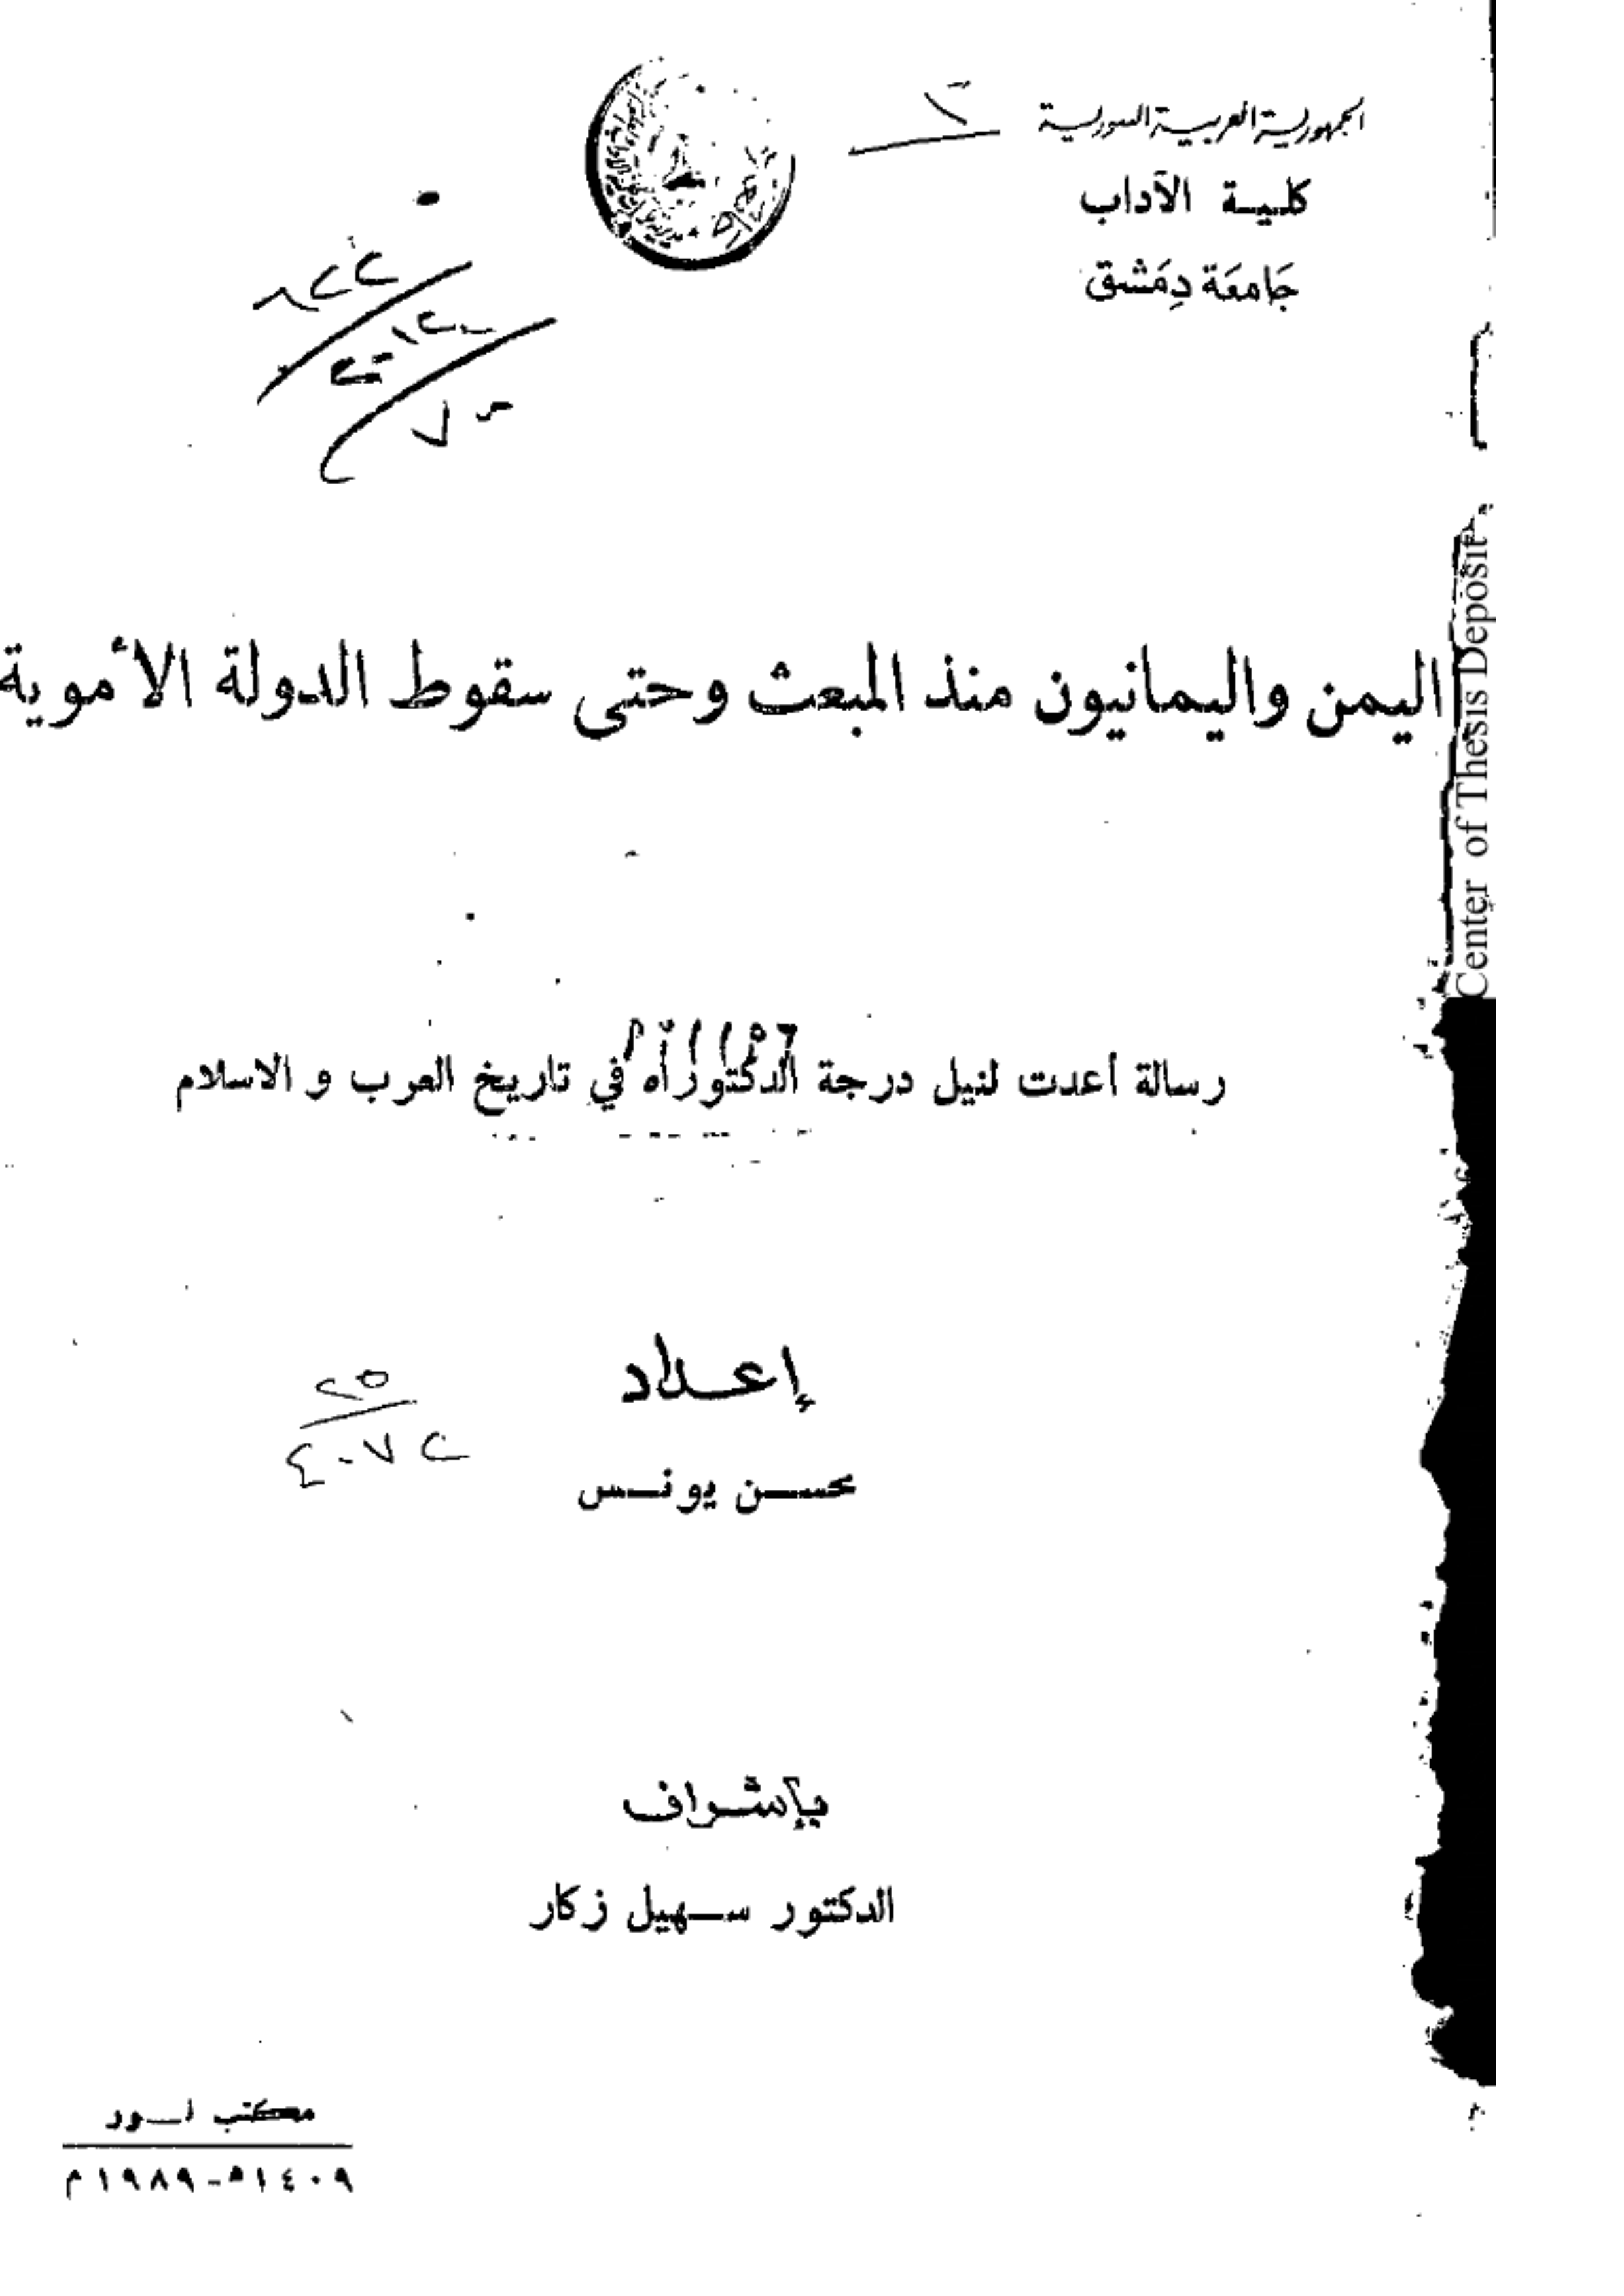 الجمهورية العربية السورية
كلية الآداب
جَامعَة دِمَشق
اليمن واليمانيون منذ المبعث وحتى سقوط الدولة الأموية
رسالة أعدت لنيل درجة الدكتوراه في تاريخ العرب و الاسلام
إعداد
محسن يونس
٢٥
٤٠٧٢
بإشراف
الدكتور سهيل زكار
مكتب
١٤٠٩ه-١٩٨٩م
Center of Thesis Deposit